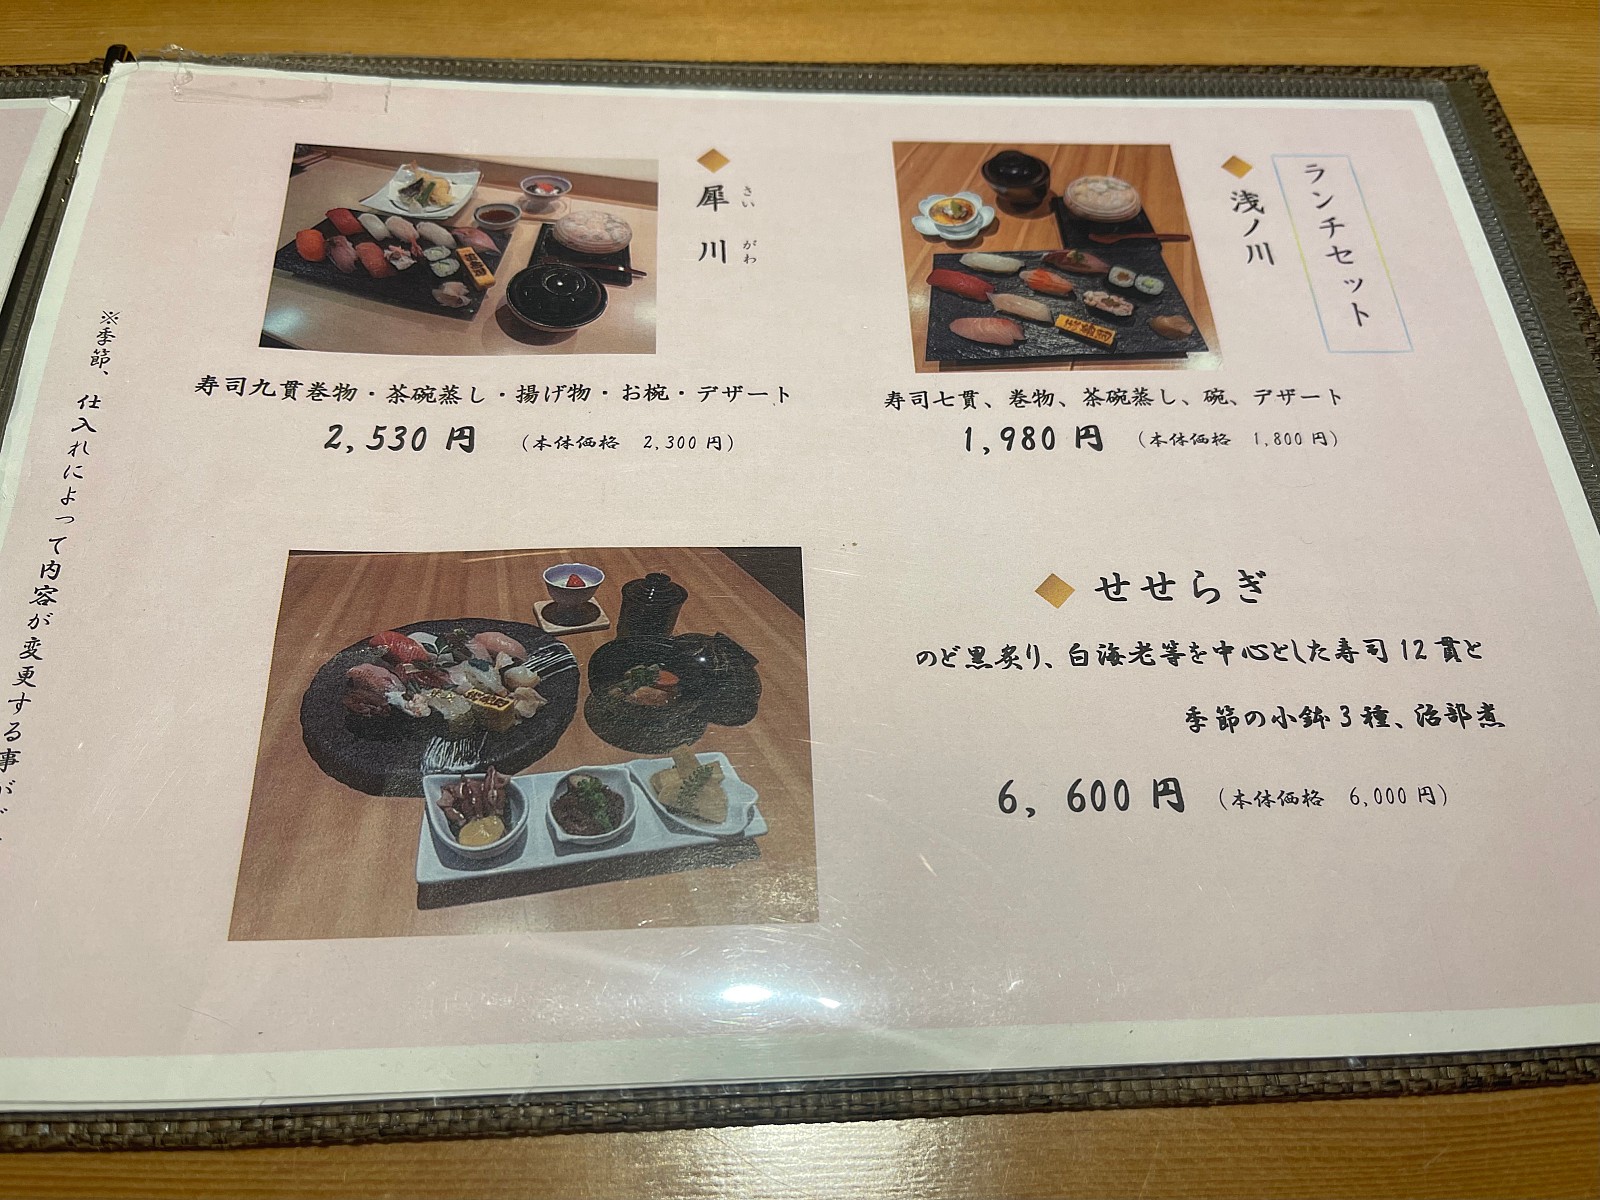 ランチセット
浅ノ川
寿司七貫、巻物、茶碗蒸し、碗、デザート
1,980 円 (本体価格 1,800 円)
犀川
さい がわ
寿司九貫巻物・茶碗蒸し・揚げ物・お椀・デザート
2,530 円 (本体価格 2,300 円)
せせらぎ
のど黒炙り、白海老等を中心とした寿司 12 貫と
季節の小鉢 3 種、治部煮
6, 600 円 (本体価格 6,000 円)
※季節、仕入れによって内容が変更する事が